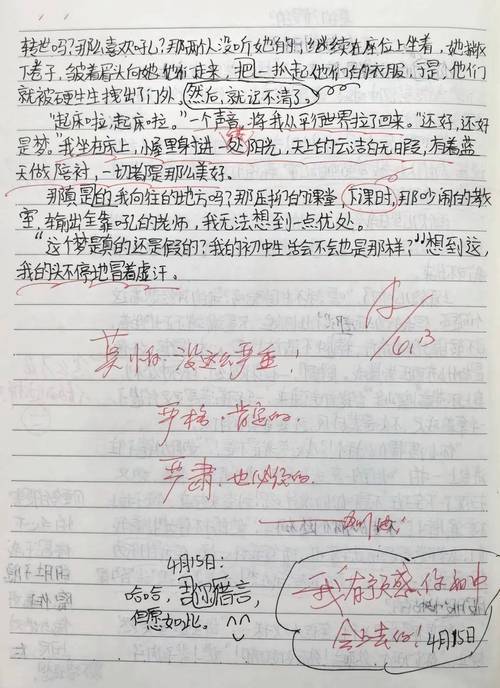 转世吗?那么喜欢吼?那两人没听她的,继续在座位上坐着,她撇
下卷子,皱着眉头向她他们走来,把一扒起他们的衣服,于是他们
就被硬生生拽出了门外。然后,就记不清了。
"起床啦,起床啦。"一个声音,将我从平行世界拉了回来。"还好,还好
是梦。"我坐在床上,小屋里射进一处阳光,天上的云洁白无暇,有着蓝
天做陪衬,一切都是那么美好。
那真是的我向往的地方吗?那压抑的课堂,下课时,那吵闹的教
室,输出全靠吼的老师,我无法想到一点优处。
"这个梦是真的还是假的?我的初中生活会不会也是那样?"想到这,
我的头不停地冒着虚汗。
6.13
莫怕,没这么严重!
严格,肯定的。
严肃,也必须的。
4月15日:
哈哈,
但愿如此。^^
我有预感,你初中
会上去的!4月15日